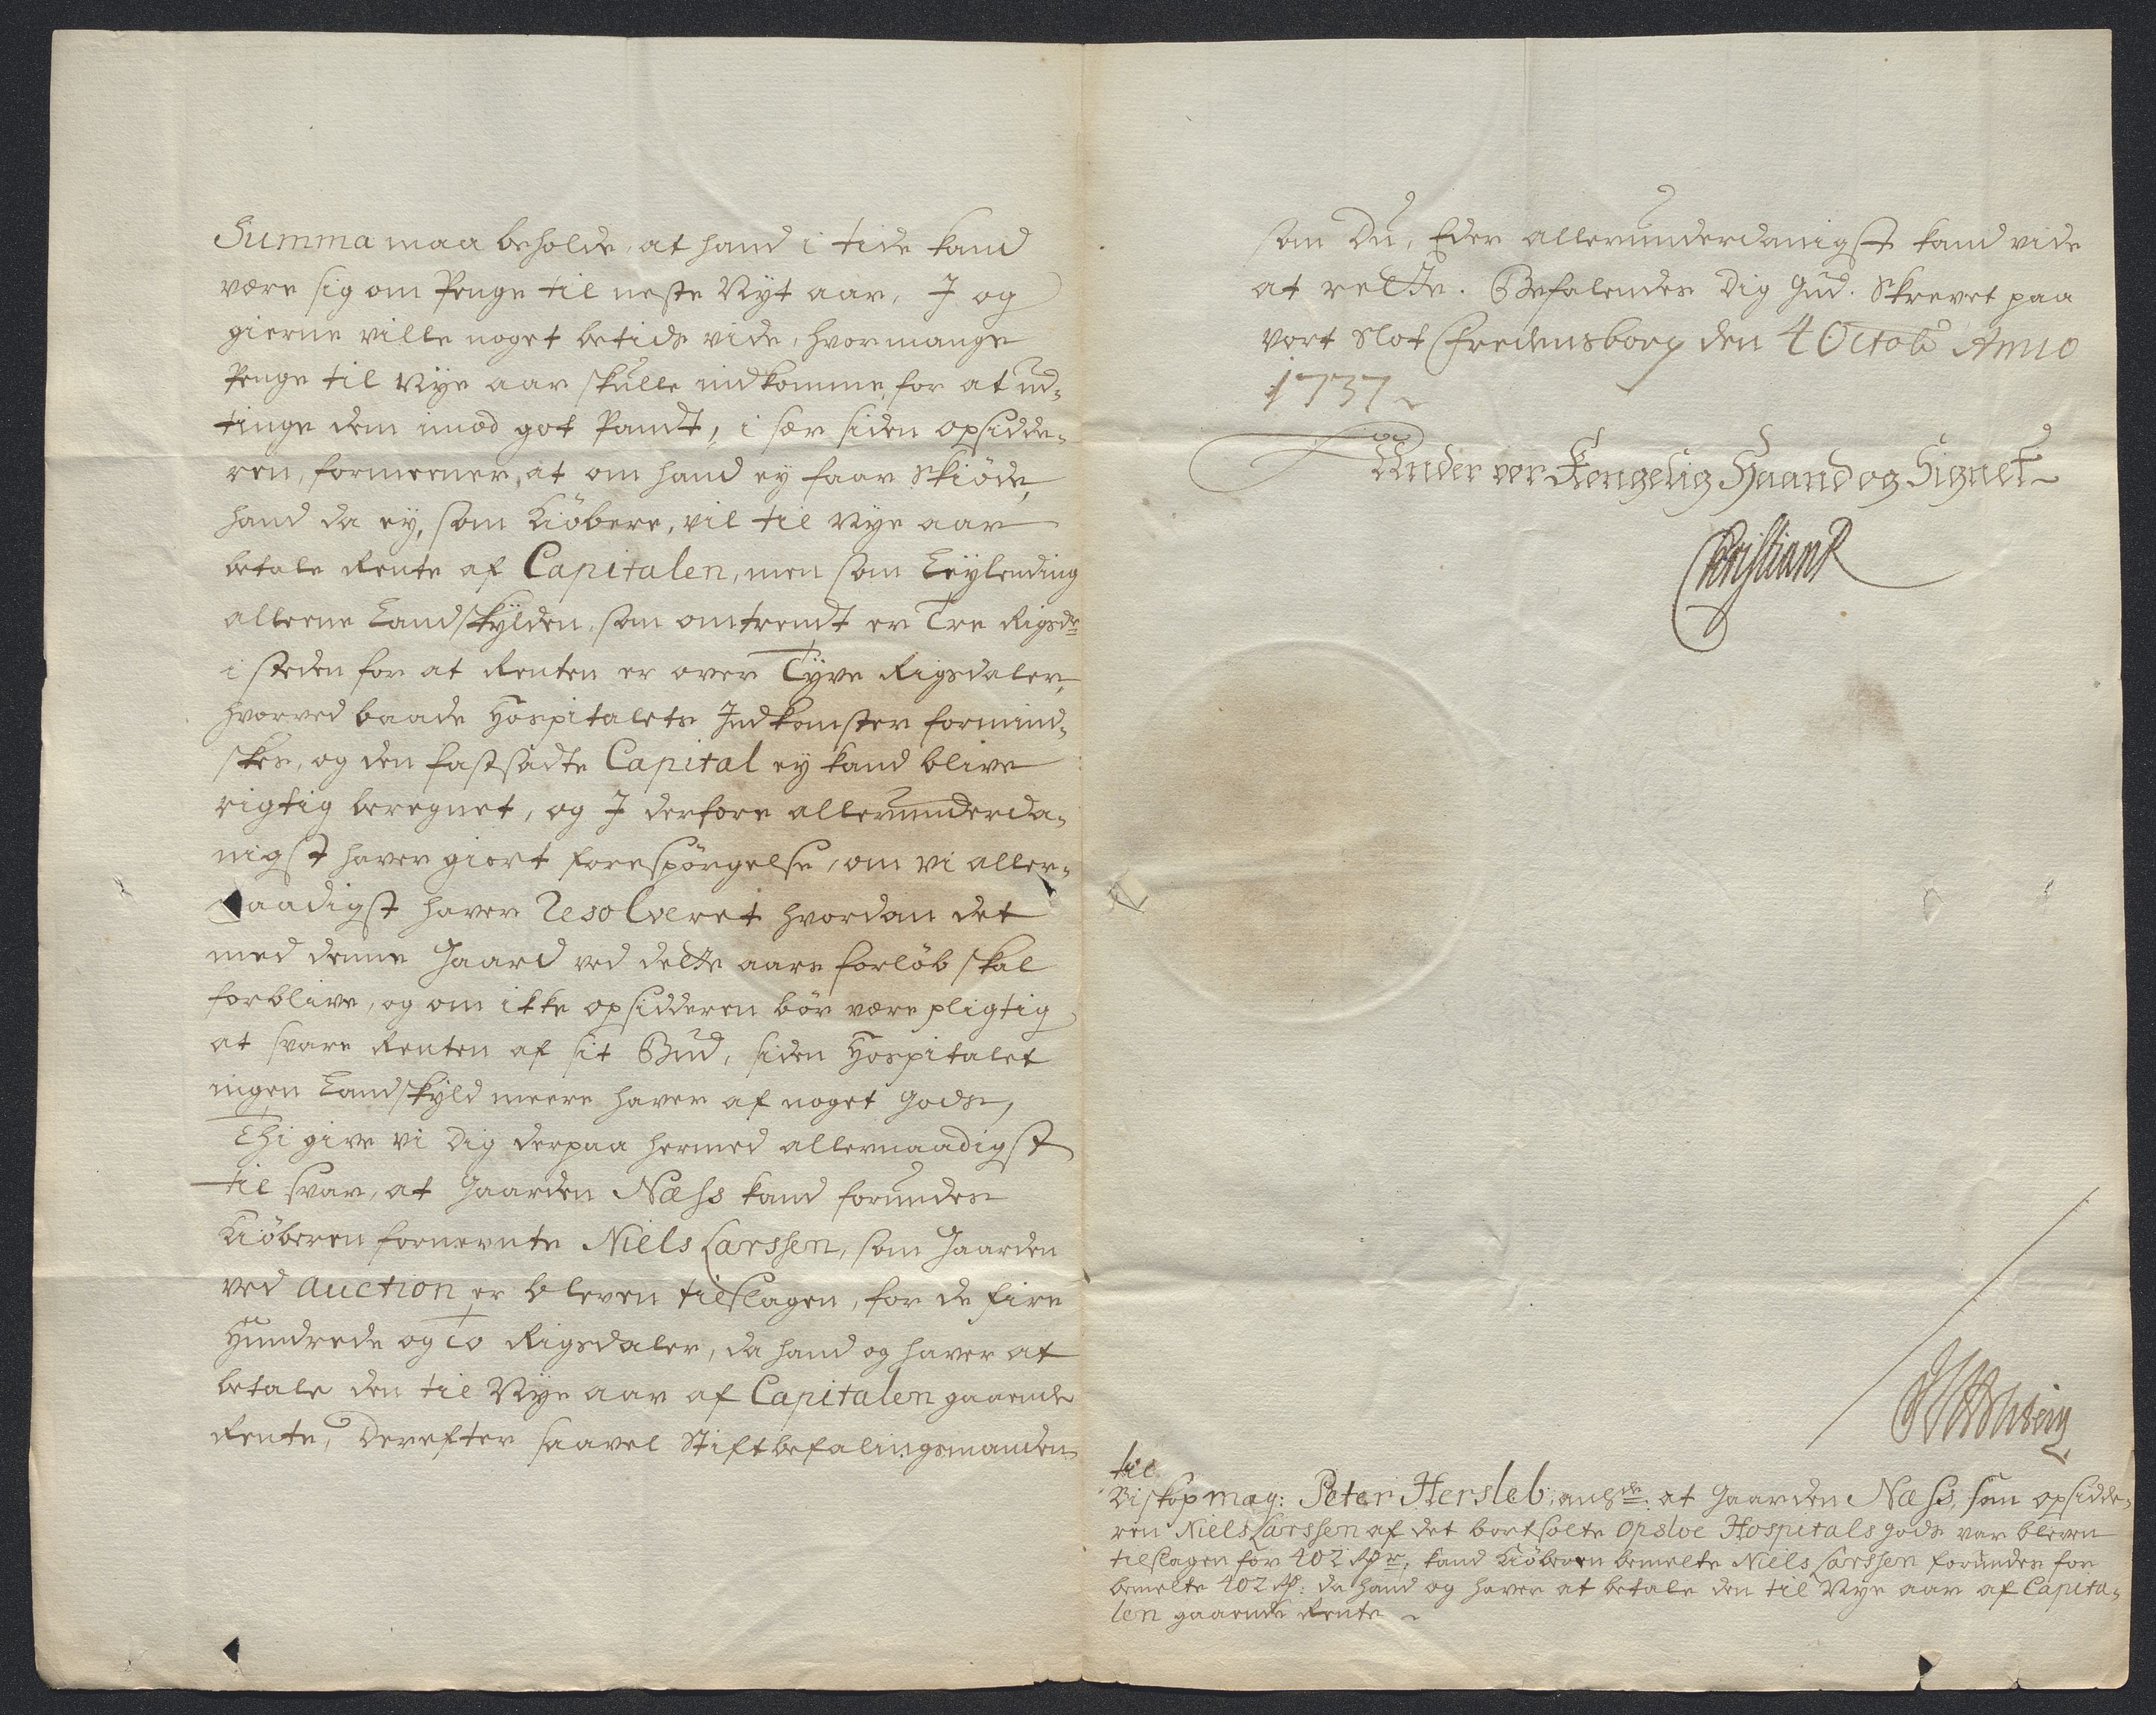 Summa maa beholde, at hand i tide kand
være sig om Penge til neste Nyt aar, I og
gierne ville noget betids vide, hvormange
Penge til Nye aar skulle indkomme, for at ud-
tinge dem imod got Pandt, i sær siden opsidde-
ren, formeener, at om hand ey faar Skiöde,
hand da ey, som Kiöbere, vil til Nye aar
betale Rente af Capitalen, men som Leylending
alleene Landskylden, som omtrendt er Tre Rigsdr
i steden for at Renten er over Tyve Rigsdaler,
hvorved baade Hospitalets Indkomster formind-
skes, og den fastsadte Capital ey kand blive
rigtig beregnet, og I derfore allerunderda-
nigst haver giort forespörgelse, om vi aller-
naadigst haver Resolveret hvordan det
med denne Gaard ved dette aars forlöb skal
forblive, og om ikke opsidderen bör være pligtig
at svare Renten af sit Bud, siden Hospitalet
ingen Landskyld meere haver af noget Gods,
Thi give vi Dig derpaa hermed allernaadigst
til svar, at Gaarden Næss kand forundes
Kiöberen fornevnte Niels Larssen, som Gaarden
ved Auction er bleven tilslagen, for de fire
Hundrede og To Rigsdaler, da hand og haver at
betale den til Nye aar af Capitalen gaaende
Rente, Derefter saavel Stiftbefalingsmanden
som Du, Eder allerunderdanigst kand vide
at rette. Befalendes Dig Gud. Skrevet paa
vort Slot Fredensborg den 4 Octobr Anno
1737
Under vor Kongelig Haand og Signet
Christian R
til
Biskop mag: Peter Hersleb, angde: at Gaarden Næss, som opsidde-
ren Niels Larssen af det bortsolte Opsloe Hospitals Gods var bleven
tilslagen for 402 Rdr, kand Kiöberen bemelte Niels Larssen forundes for
bemelte 402 Rd: da hand og haver at betale den til Nye aar af Capita-
len gaaende Rente